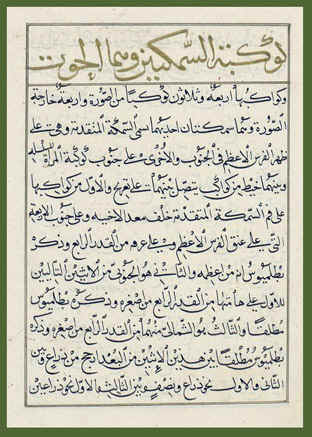 كوكبة السمكتين وهما الحوت
وكواكبها أربعة وثلاثون كوكبًا من الصورة وأربعة خارجة
الصورة وهما سمكتان احديهما تسمى السمكة المتقدمة وهى على
ظهر الفرس الأعظم في الجنوب والأخرى على جنوب كوكبة المرأة المسلسلة
وبينهما خيط من كواكب يتصل بينهما على تعريج والأول من كواكبها
على فم السمكة المتقدمة خلف سعد الأخبية وعلى جنوب الأربعة
التي على عنق الفرس الأعظم وعلى عرفه من القدر الرابع وذكر
بطلميوس انه من أعظمه والثاني هو الجنوبي من الاثنين التاليين
للأول على هامتها من القدر الرابع من أصغره وذكره بطلميوس
مطلقا والثالث هو الشمالي منهما من القدر الرابع من أصغره وذكره
بطلميوس مطلقا بين هذين الاثنين من البعد أرجح من ذراع وبين
الثاني والأول نحو ذراع ونصف وبين الثالث والأول نحو ذراعين